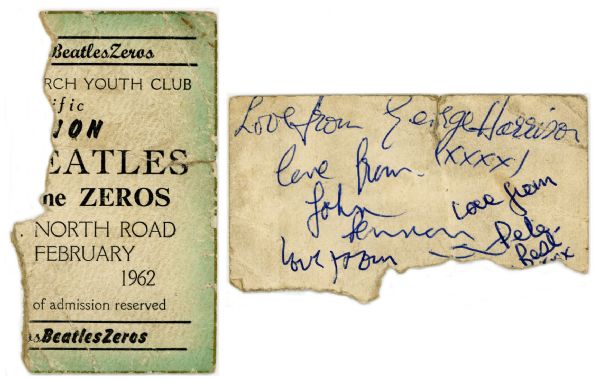 BeatlesZeros
RCH YOUTH CLUB
ific
ION
EATLES
he ZEROS
NORTH ROAD
FEBRUARY
1962
of admission reserved
BeatlesZeros
Love from George Harrison
(xxxx)
love from
John
Lennon
love from
Pete
Best
xx
love from